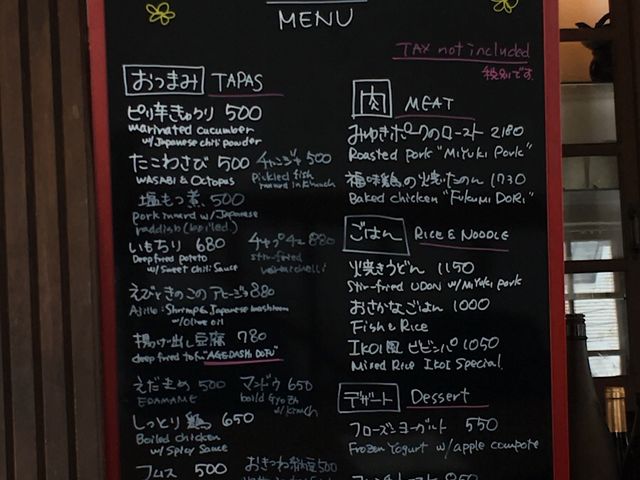 MENU
TAX not included
税別です
おつまみ TAPAS
ピリ辛きゅうり 500
marinated cucumber
w/Japanese chili powder
たこわさび 500
WASABI & Octopus
チャンジャ 500
Pickled fish
塩もつ煮 500
pork innard w/Japanese
raddish (boiled)
いもちり 680
Deep fried potato
w/sweet chili sauce
チャプチェ 880
stir-fried
えびときのこのアヒージョ 880
Ajillo: Shrimp & Japanese mushroom
w/Olive oil
揚げ出し豆腐 780
deep fried tofu "AGEDASHI DOFU"
えだまめ 500
EDAMAME
マンドゥ 650
boild Gyoza
しっとり鶏 650
Boiled chicken
w/ Spicy Sauce
フムス 500
肉 MEAT
みゆきポークのロースト 2180
Roasted pork "MIYUKI Pork"
福味鶏の焼いたのん 1730
Baked chicken "FUKUMI DORI"
ごはん RICE & NOODLE
焼きうどん 1150
Stir-fried UDON w/Miyuki pork
おさかなごはん 1000
Fish & Rice
IKOI風 ビビンバ 1050
Mixed Rice IKOI Special
デザート Dessert
フローズンヨーグルト 550
Frozen Yogurt w/apple compote